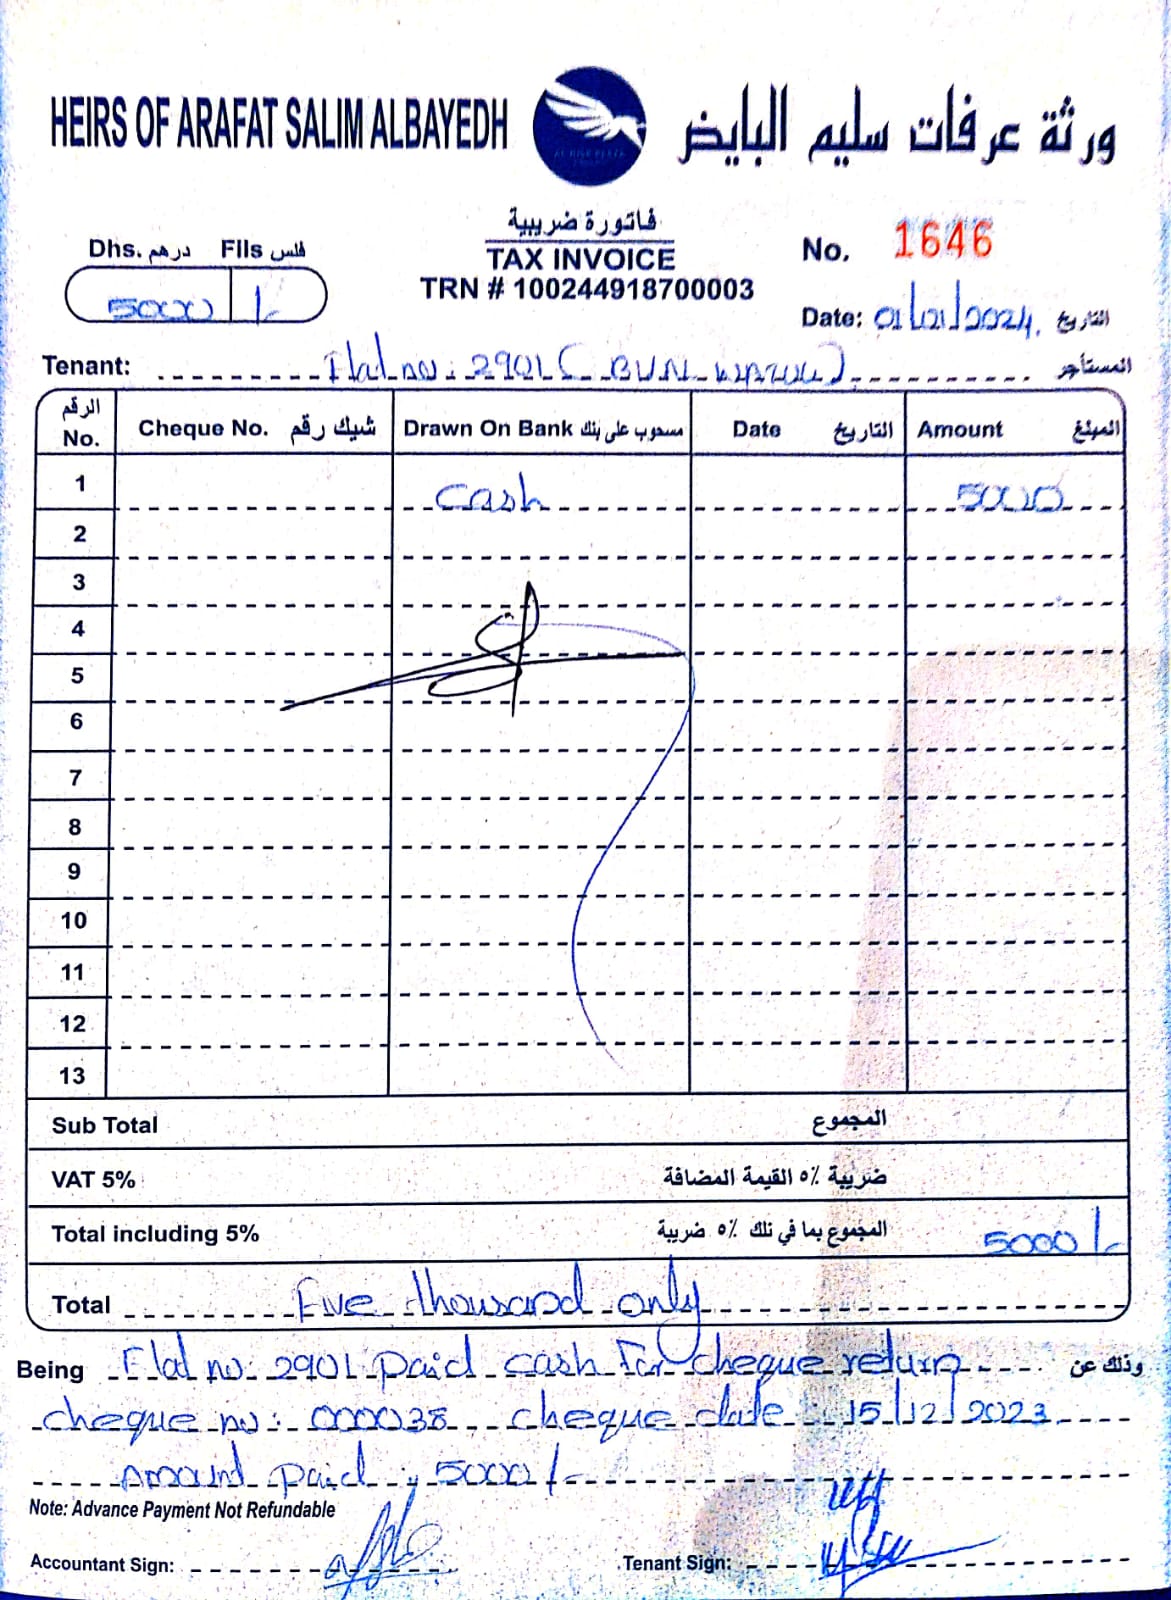 HEIRS OF ARAFAT SALIM ALBAYEDH
ورثة عرفات سليم البايض
فاتورة ضريبية
TAX INVOICE
TRN # 100244918700003
Dhs. درهم Fils فلس
5000 /-
No. 1646
Date: 01/01/2024 التاريخ
Tenant: Flat no: 2901 ( المستأجر
الرقم No. Cheque No. شيك رقم Drawn On Bank مسحوب على بنك Date التاريخ Amount المبلغ
1 Cash 5000
2
3
4
5
6
7
8
9
10
11
12
13
Sub Total المجموع
VAT 5% ضريبة ٥٪ القيمة المضافة
Total including 5% المجموع بما في ذلك ٥٪ ضريبة 5000/-
Total Five thousand only
Being Flat no: 2901 paid cash for cheque return وذلك عن
cheque no: 000038 cheque date: 15/12/2023
Amount paid: 5000/-
Note: Advance Payment Not Refundable
Accountant Sign: Tenant Sign: